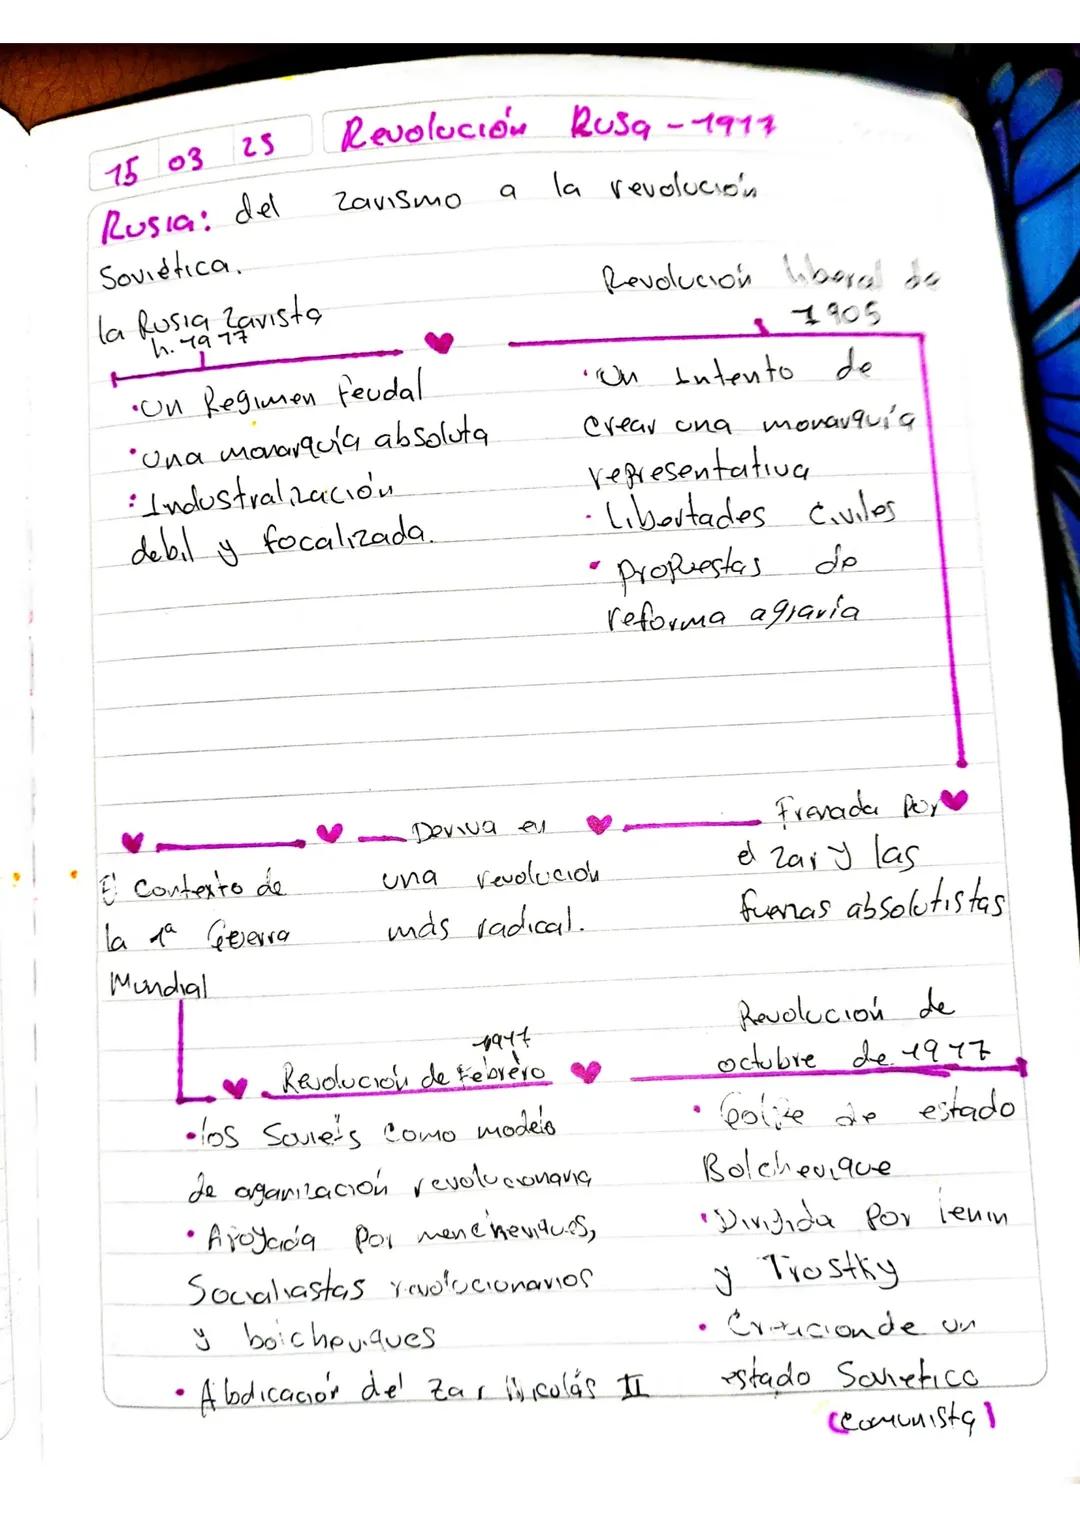 15 03 25 Revolución Rusa - 1917
Rusia: del zarismo a la revolución
Soviética.
la Rusia zarista
h. 1917
• Un Regimen feudal
• Una monarquía absoluta
• Industralización
debil y focalizada.
Revolución liberal de
1905
• Un Intento de
crear una monarquía
representativa
• Libertades Civiles
• Propuestas de
reforma agraria
Frenada por
el zar y las
fuerzas absolutistas
Deriva en
una revolución
más radical.
El Contexto de
la 1ª Guerra
Mundial
1917
Revolución de Febrero
• los Soviets como modelo
de organización revolucionaria
• Apoyada por mencheviques,
Socialiastas revolucionarios
y bolcheviques
• Abdicación del zar Nicolás II
Revolución de
octubre de 1917
• Golpe de estado
Bolchevique
• Dirigida por lenin
y Trostky
• Creacion de un
estado Sovietico
(Comunista)